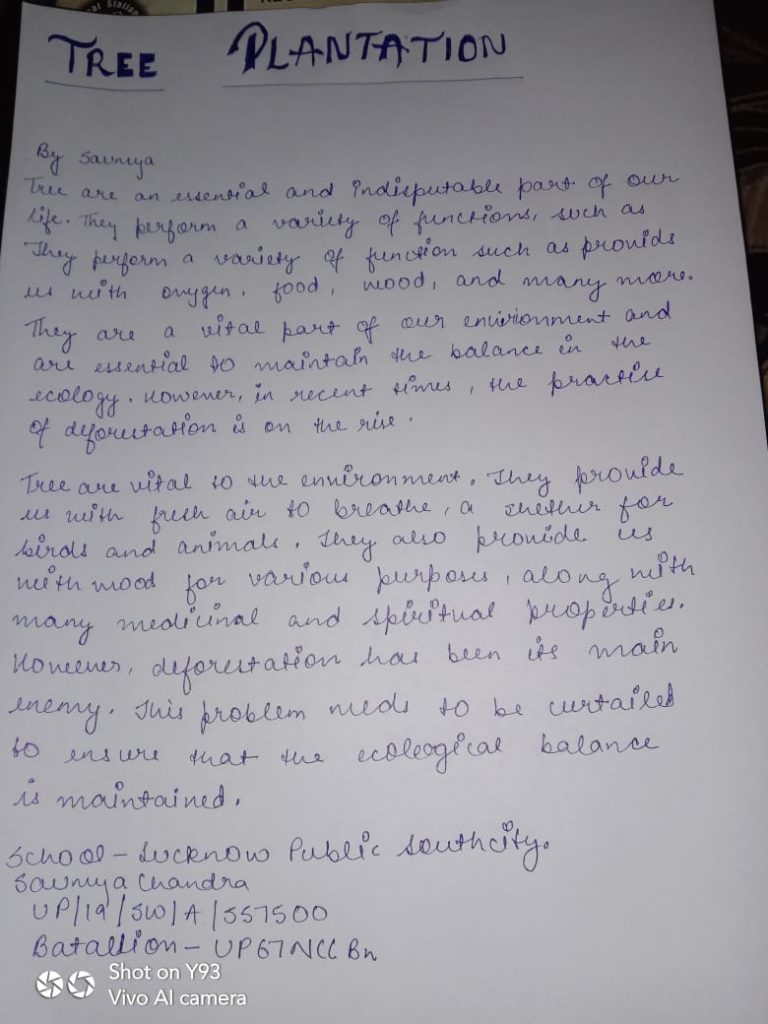 TREE PLANTATION
By Saumya
Tree are an essential and indisputable part of our
life. They perform a variety of functions, such as
They perform a variety of function such as provids
us with oxygen, food, wood, and many more.
They are a vital part of our environment and
are essential to maintain the balance in the
ecology. However, in recent times, the practise
of deforestation is on the rise.
Tree are vital to the environment. They provide
us with fresh air to breathe, a shelter for
birds and animals. They also provide us
with wood for various purposes, along with
many medicinal and spiritual properties.
However, deforestation has been its main
enemy. This problem needs to be curtailed
to ensure that the ecological balance
is maintained.
School - Lucknow Public Southcity.
Saumya Chandra
UP/19/SW/A/557500
Batallion - UP67NCC Bn
Shot on Y93
Vivo AI camera